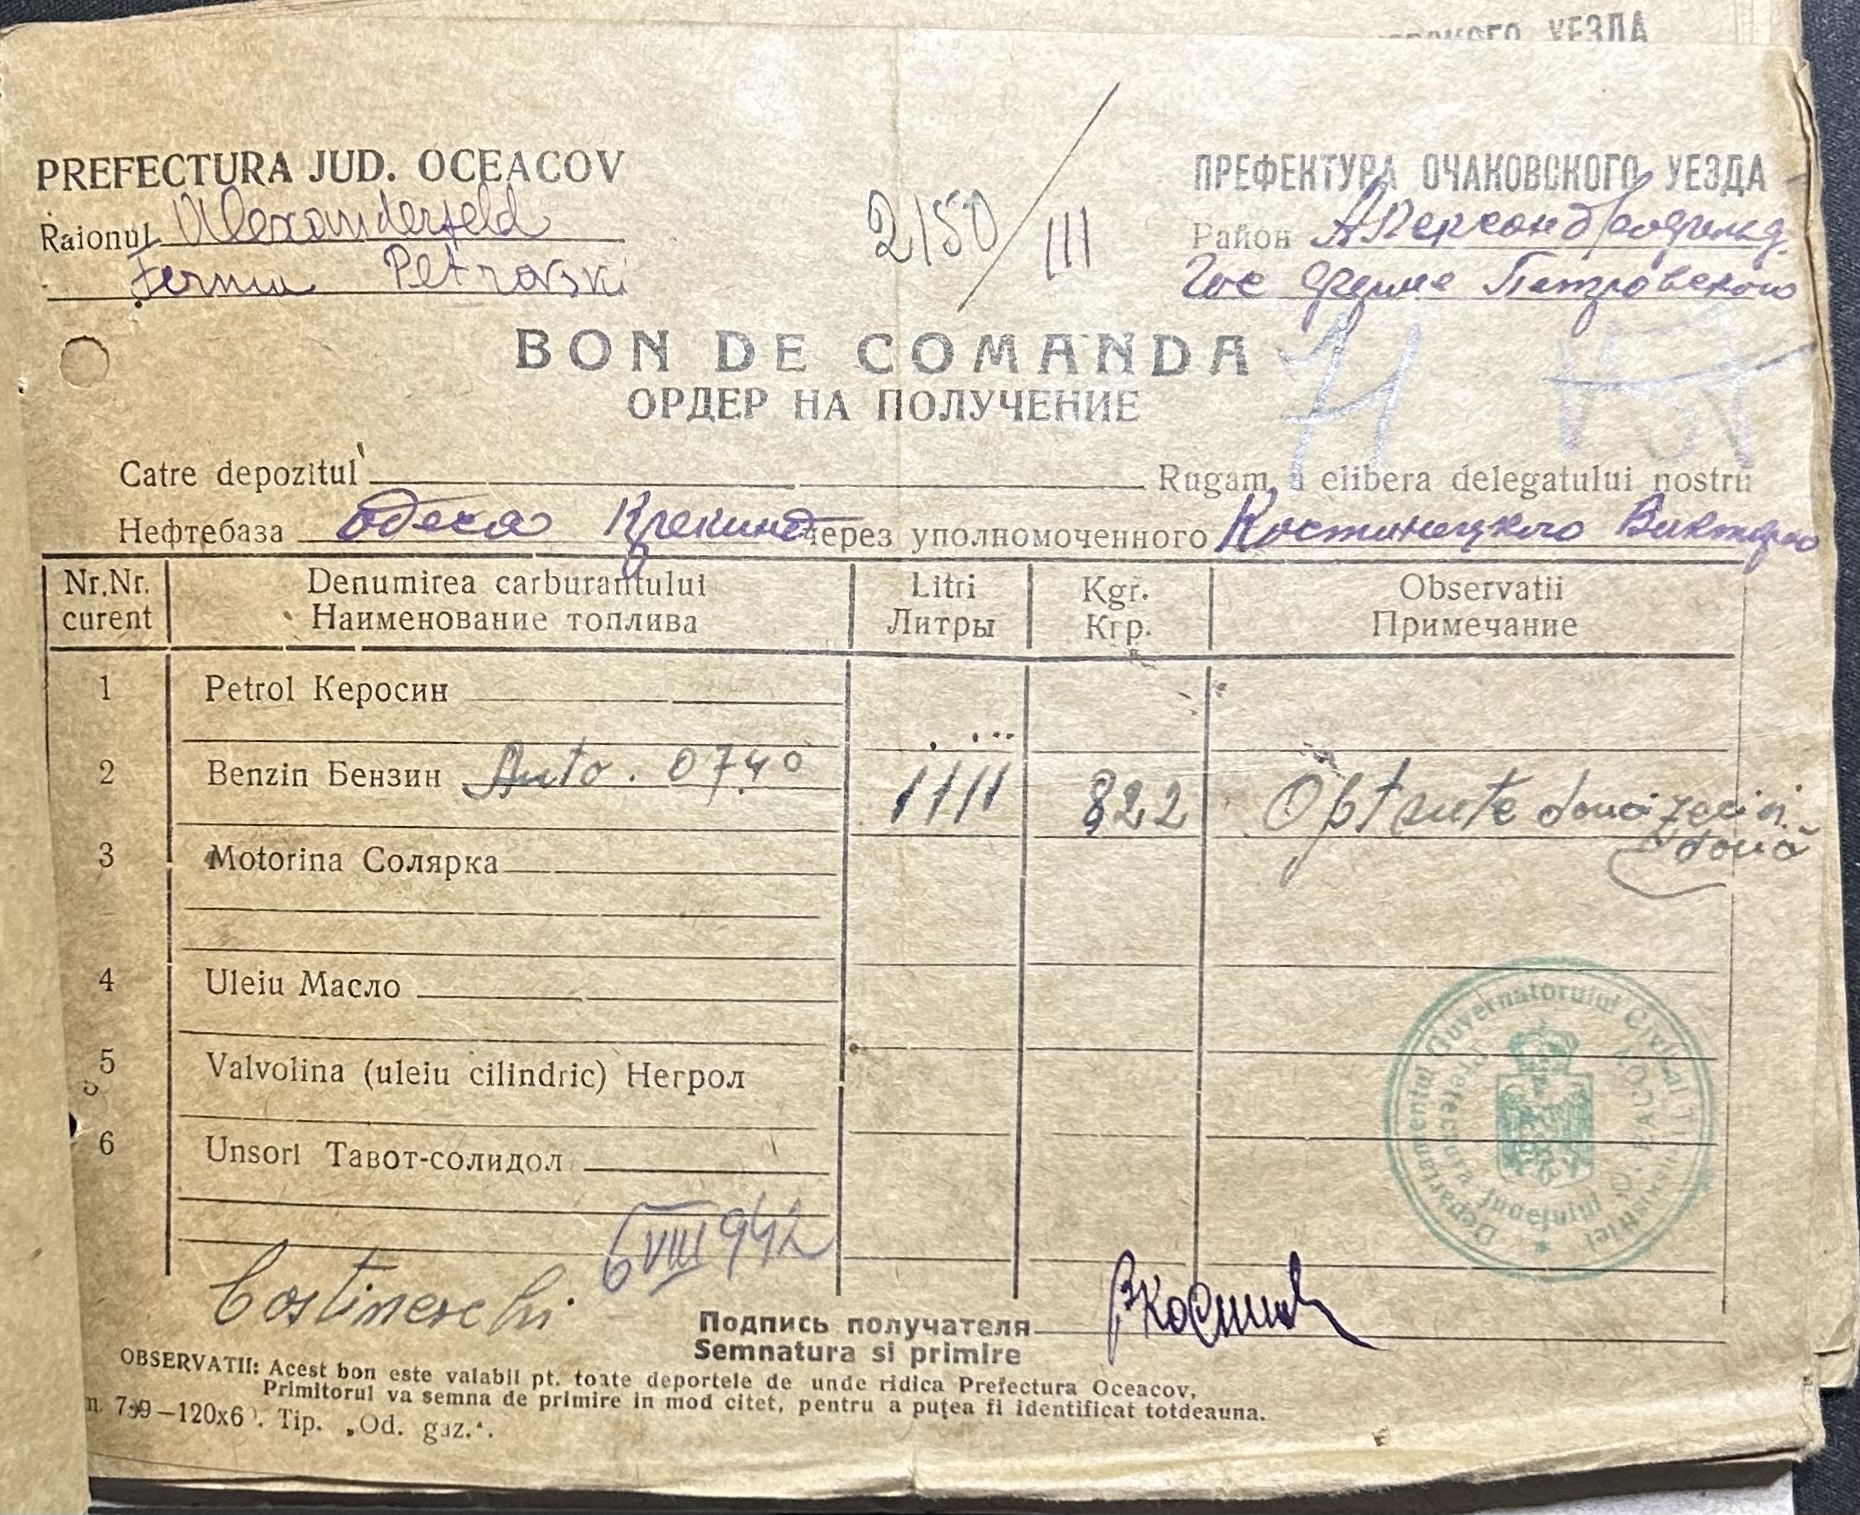 ОВСКОГО УЕЗДА
PREFECTURA JUD. OCEACOV
ПРЕФЕКТУРА ОЧАКОВСКОГО УЕЗДА
2150/III
Raionul Alexanderfeld
Район
Ferma Petrovski
Гос ферма Петровского
BON DE COMANDA
ОРДЕР НА ПОЛУЧЕНИЕ
71
Catre depozitul Rugam a elibera delegatului nostru
Нефтебаза Одеса Крекинг через уполномоченного Костинецкого Виктора
Nr.Nr. curent
Denumirea carburantului
Наименование топлива
Litri
Литры
Kgr.
Кгр.
Observatii
Примечание
1 Petrol Керосин
2 Benzin Бензин Auto. 0740 1111 822 Optsute douăzeci și două
3 Motorina Солярка
4 Uleiu Масло
5 Valvolina (uleiu cilindric) Негрол
6 Unsori Тавот-солидол
Departamentul Guvernatorului Civil al Transnistriei
Prefectura Județului Oceacov
6 VIII 942
Costinerchi
Подпись получателя
Semnatura si primire
OBSERVATII: Acest bon este valabil pt. toate deportele de unde ridica Prefectura Oceacov,
Primitorul va semna de primire in mod citet, pentru a puţea fi identificat totdeauna.
Tip. „Od. gaz.“.